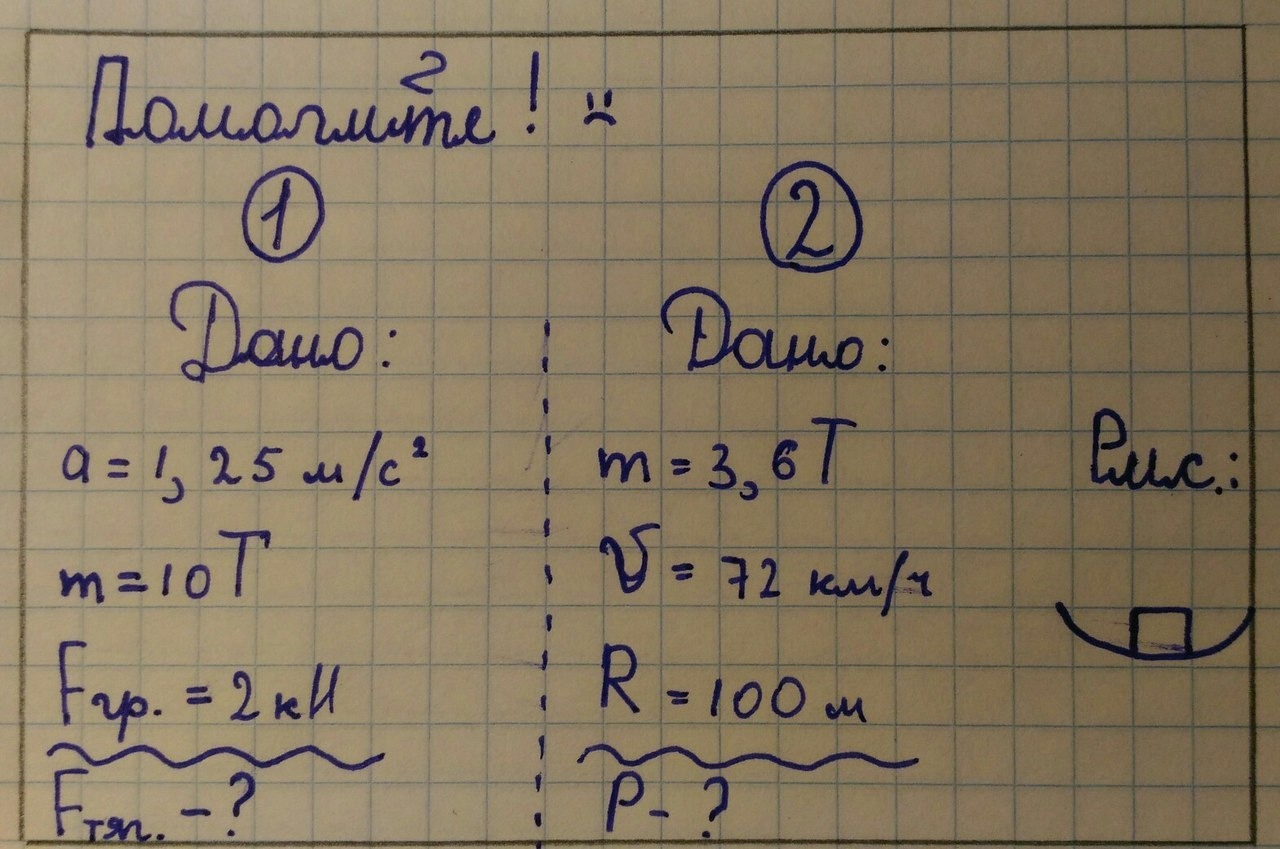 Помогите! :(
2
1
Дано:
a = 1,25 м/с²
m = 10 Т
Fгр. = 2 кН
Fтяг. - ?
2
Дано:
m = 3,6 Т
V = 72 км/ч
R = 100 м
P - ?
Рис.: